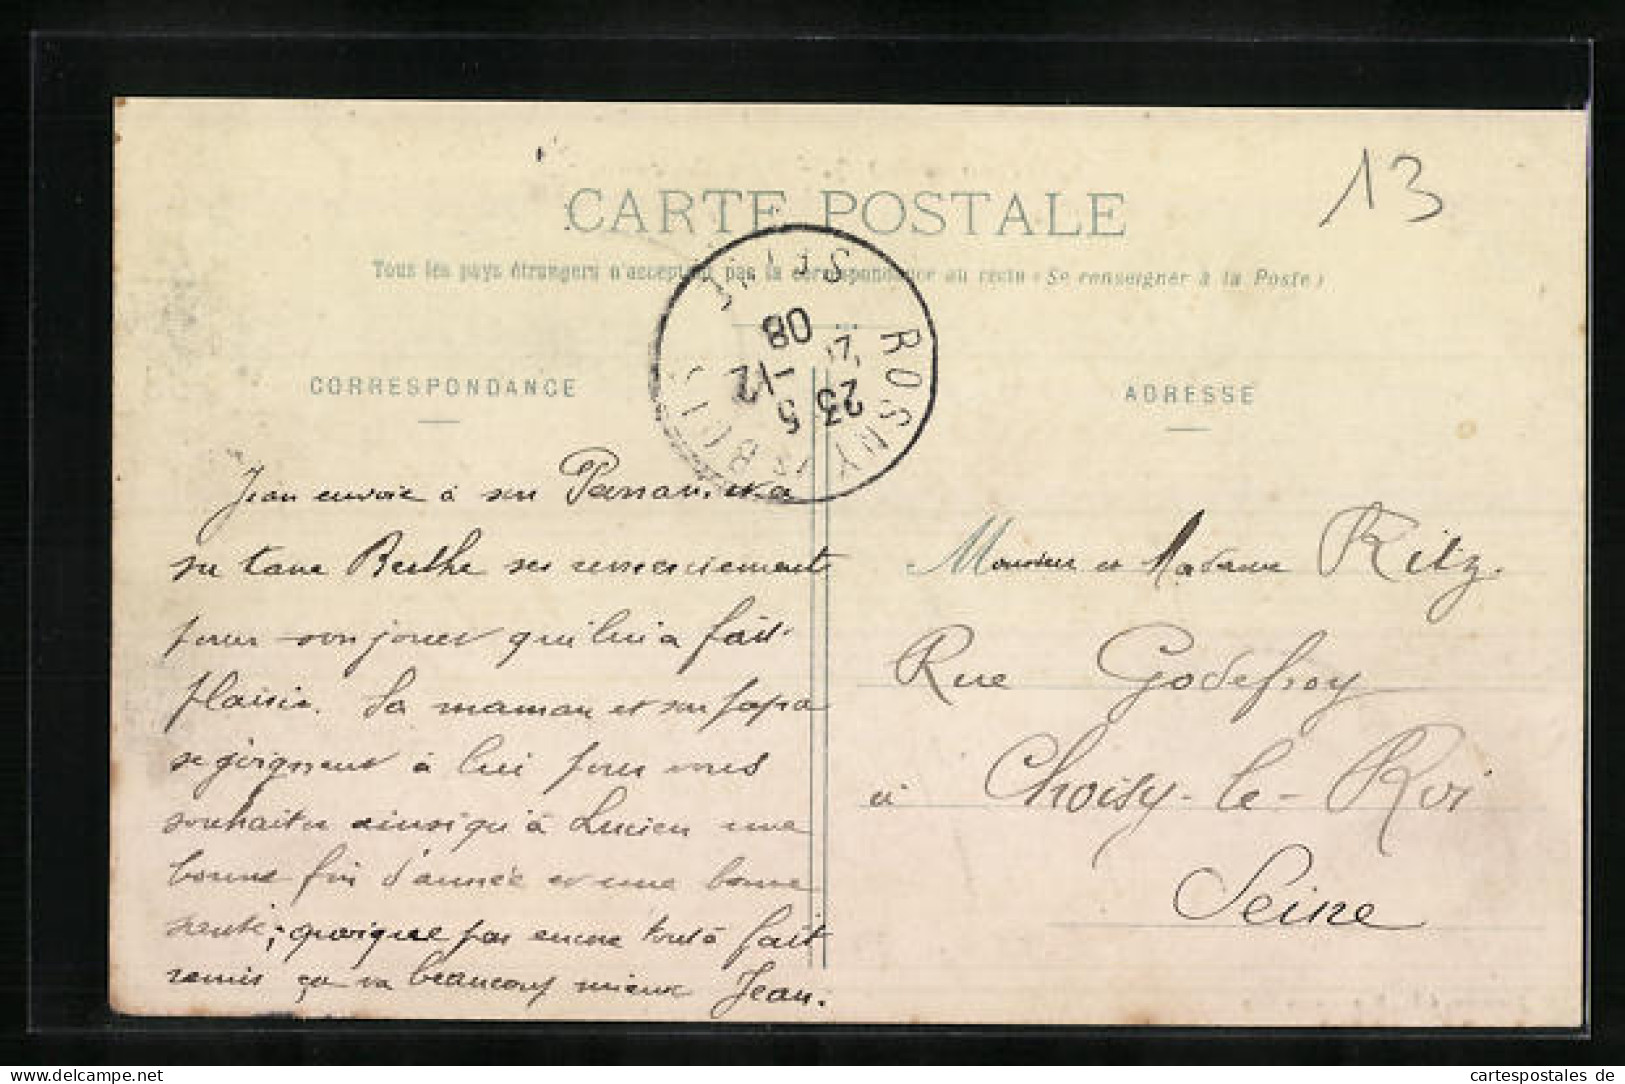 13
CARTE POSTALE
Tous les pays étrangers n'acceptent pas la correspondance au recto (Se renseigner à la Poste)
ROSNY-S-BOIS
SEINE
23
5 -12
08
CORRESPONDANCE
ADRESSE
Jean envoie à son
sa tante Berthe ses remerciement
pour son jouet qui lui a fait
plaisir. Sa maman et son papa
se joignent à lui pour vous
souhaiter ainsi qu'à Lucien une
bonne fin d'année et une bonne
santé; quoique pas encore tout à fait
remis ça va beaucoup mieux Jean.
Monsieur et Madame Ritz.
Rue Godefroy
à Choisy-le-Roi
Seine
cartespostales de